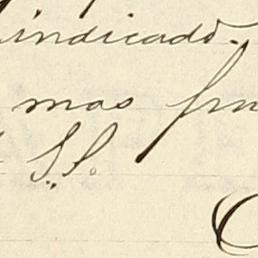 indicado.
mas
S.S.